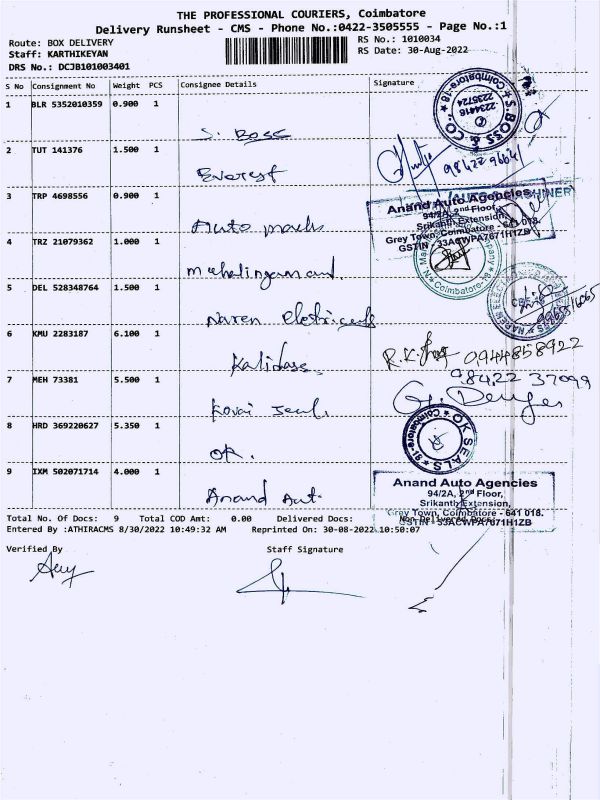 THE PROFESSIONAL COURIERS, Coimbatore
Delivery Runsheet - CMS - Phone No.:0422-3505555 - Page No.:1
Route: BOX DELIVERY
RS No.: 1010034
Staff: KARTHIKEYAN
RS Date: 30-Aug-2022
DRS No.: DCJB101003401
S No Consignment No Weight PCS Consignee Details Signature
1 BLR 5352010359 0.900 1 S. BOSS
S BOSS & CO. Coimbatore-18 2234416 2235724
2 TUT 141376 1.500 1 Everest
3 TRP 4698556 0.900 1 Auto marks
Anand Auto Agencies
94/2A, 2nd Floor,
Srikanth Extension,
Grey Town, Coimbatore - 641 018.
GSTIN - 33ACWPA7671H1ZB
4 TRZ 21079362 1.000 1 mahalingam and.
Coimbatore-18
5 DEL 528348764 1.500 1 Naren electricals
6 KMU 2283187 6.100 1 Kalidass.
09448 58922
98422 37099
7 MEH 73381 5.500 1 Kovai seal.
8 HRD 369220627 5.350 1 OK.
OK SEALS Coimbatore-18
9 IXM 502071714 4.000 1 Anand Aut.
Anand Auto Agencies
94/2A, 2nd Floor,
Srikanth Extension,
Grey Town, Coimbatore - 641 018.
GSTIN - 33ACWPA7671H1ZB
Total No. Of Docs: 9 Total COD Amt: 0.00 Delivered Docs: Non-Delivered Docs:
Entered By :ATHIRACMS 8/30/2022 10:49:32 AM Reprinted On: 30-08-2022 10:50:07
Verified By Staff Signature